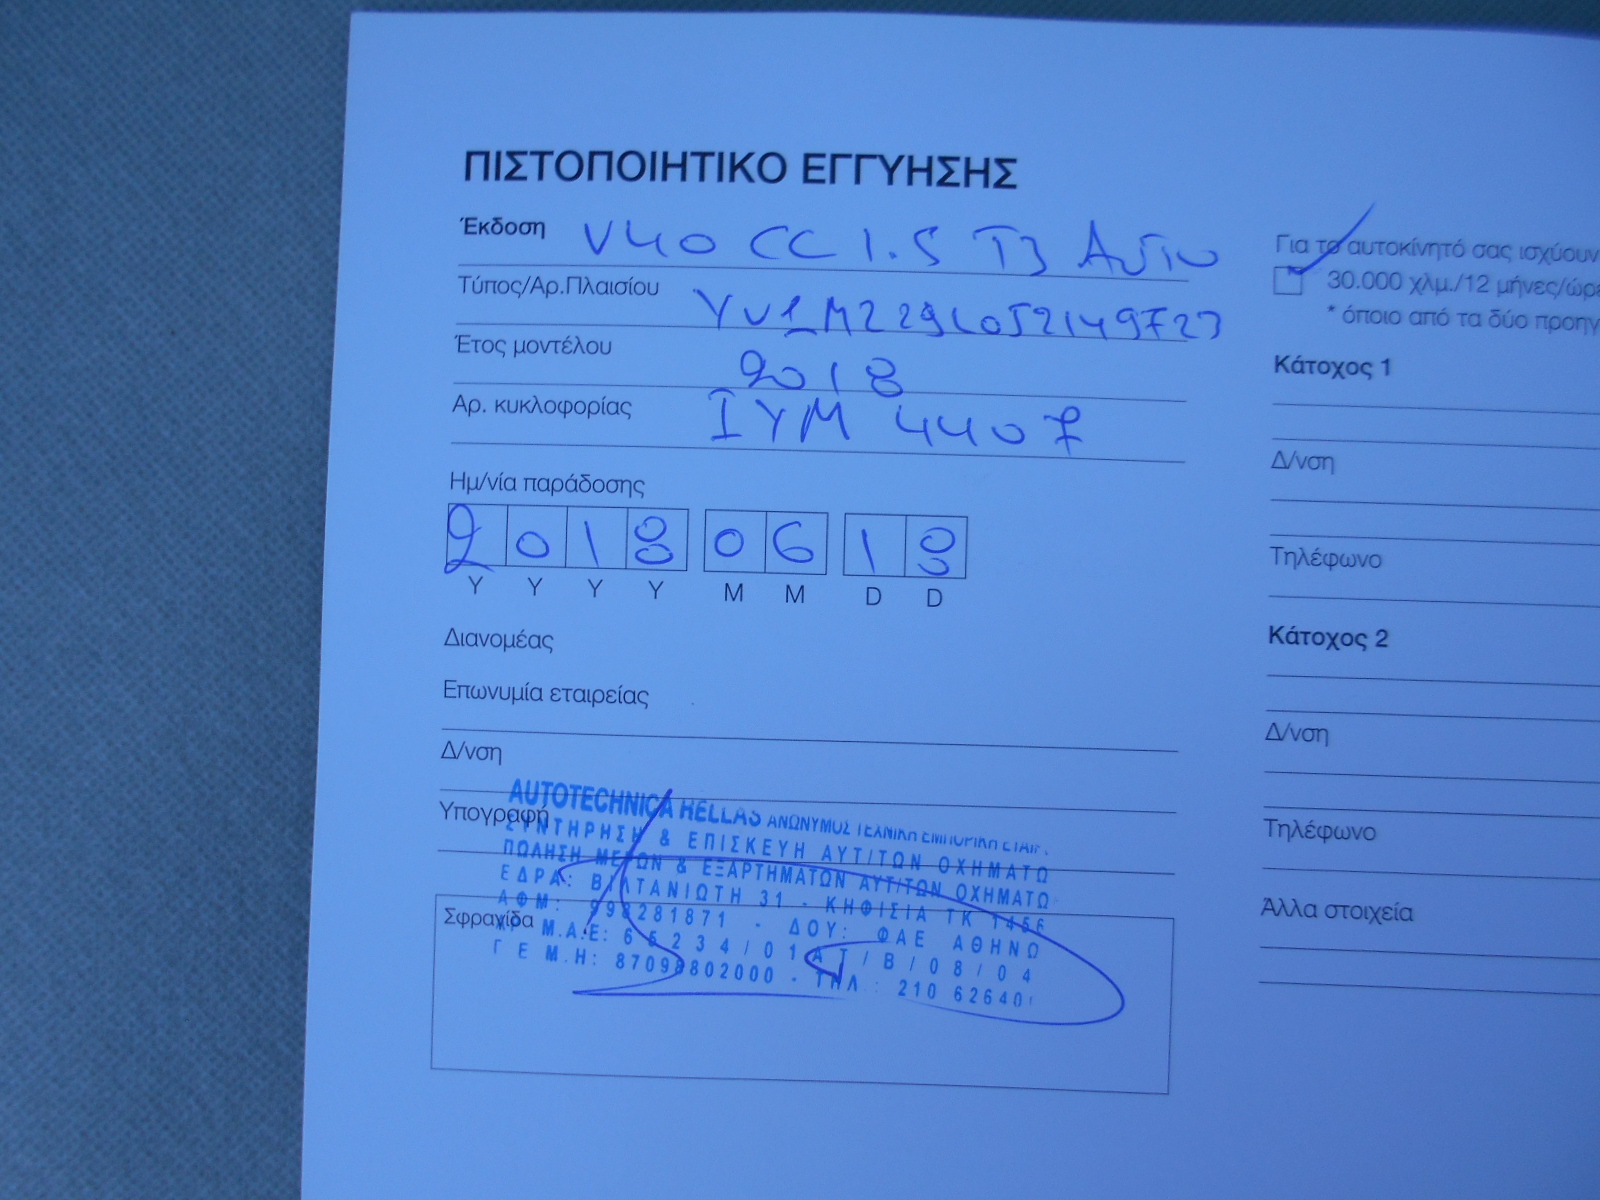 ΠΙΣΤΟΠΟΙΗΤΙΚΟ ΕΓΓΥΗΣΗΣ
Έκδοση V40 CC 1.5 T3 Αυτο
Τύπος/Αρ.Πλαισίου YV1MZ29L0J2149723
Έτος μοντέλου 2018
Αρ. κυκλοφορίας ΙΥΜ 4407
Ημ/νία παράδοσης
2 0 1 8 0 6 1 8
Y Y Y Y M M D D
Διανομέας
Επωνυμία εταιρείας
Δ/νση
Υπογραφή
Σφραγίδα
AUTOTECHNICA HELLAS ΑΝΩΝΥΜΟΣ ΤΕΧΝΙΚΗ ΕΜΠΟΡΙΚΗ ΕΤΑΙΡ.
ΣΥΝΤΗΡΗΣΗ & ΕΠΙΣΚΕΥΗ ΑΥΤ/ΤΩΝ ΟΧΗΜΑΤΩ
ΠΩΛΗΣΗ ΜΕΡΩΝ & ΕΞΑΡΤΗΜΑΤΩΝ ΑΥΤ/ΤΩΝ ΟΧΗΜΑΤΩ
ΕΔΡΑ: ΒΙΛΤΑΝΙΩΤΗ 31 - ΚΗΦΙΣΙΑ ΤΚ 1456
ΑΦΜ: 998281871 - ΔΟΥ: ΦΑΕ ΑΘΗΝΩ
Μ.Α.Ε: 65234/01ΑΤ/Β/08/04
Γ Ε Μ.Η: 87098802000 - ΤΗΛ.: 210 62640
Για το αυτοκίνητό σας ισχύουν
30.000 χλμ./12 μήνες/ώρε
* όποιο από τα δύο προηγ
Κάτοχος 1
Δ/νση
Τηλέφωνο
Κάτοχος 2
Δ/νση
Τηλέφωνο
Άλλα στοιχεία